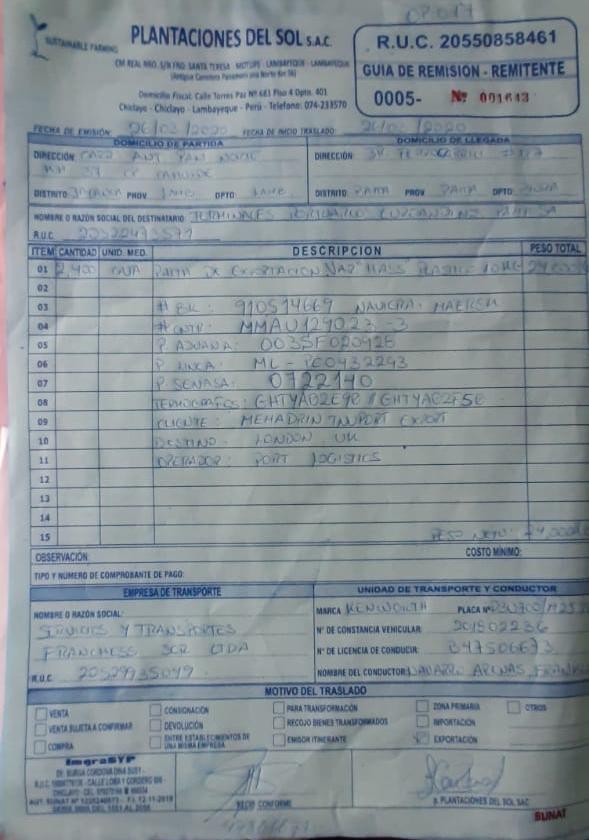 OP 017
SUSTAINABLE FARMING
PLANTACIONES DEL SOL S.A.C.
CM REAL NRO. S/N FND. SANTA TERESA - MOTUPE - LAMBAYEQUE - LAMBAYEQUE
(Antigua Carretera Panamericana Norte Km 36)
Domicilio Fiscal: Calle Torres Paz Nº 681 Piso 4 Dpto. 401
Chiclayo - Chiclayo - Lambayeque - Perú - Telefono: 074-233570
R.U.C. 20550858461
GUIA DE REMISION - REMITENTE
0005- Nº 001643
FECHA DE EMISIÓN: 26/02/2020 FECHA DE INICIO TRASLADO: 26/02/2020
DOMICILIO DE PARTIDA
DIRECCIÓN: ANT PAN NORTE
KM 37 CP
DISTRITO: PROV LAMB DPTO: LAMB.
DOMICILIO DE LLEGADA
DIRECCIÓN:
DISTRITO: PAITA PROV PAITA DPTO: PIURA
NOMBRE O RAZÓN SOCIAL DEL DESTINATARIO: TERMINALES PORTUARIOS EUROANDINOS PAITA SA
R.U.C. 20522473571
ITEM CANTIDAD UNID. MED. DESCRIPCION PESO TOTAL
01 2,400 CAJA PALTA DE EXPORTACION VAR "HASS" PLASTICO 10KG 24,000
02
03 # BK: 910514669 NAVIERA: MAERSK
04 # CNTR: MMAU129023-3
05 P. ADUANA: 003SF020928
06 P. LINEA: ML-PE0432243
07 P. SENASA: 0722140
08 TERMOGRAFOS: GHTYA02E9R // GHTYA02F5E
09 CLIENTE: MEHADRIN TNUPORT EXPORT
10 DESTINO: LONDON, UK
11 OPERADOR: PORT LOGISTICS
12
13
14
15 PESO NETO: 24,000
OBSERVACIÓN: COSTO MÍNIMO:
TIPO Y NÚMERO DE COMPROBANTE DE PAGO:
EMPRESA DE TRANSPORTE
NOMBRE O RAZÓN SOCIAL:
SERVICIOS Y TRANSPORTES
FRANCHESS SCR LTDA
R.U.C. 20529935049
UNIDAD DE TRANSPORTE Y CONDUCTOR
MARCA KENWORTH PLACA Nº
Nº DE CONSTANCIA VEHICULAR: 201502236
Nº DE LICENCIA DE CONDUCIR: B47506673
NOMBRE DEL CONDUCTOR: NAVARRO ARENAS,
MOTIVO DEL TRASLADO
VENTA CONSIGNACIÓN PARA TRANSFORMACIÓN ZONA PRIMARIA OTROS
VENTA SUJETA A CONFIRMAR DEVOLUCIÓN RECOJO BIENES TRANSFORMADOS IMPORTACIÓN
COMPRA ENTRE ESTABLECIMIENTOS DE UNA MISMA EMPRESA EMISOR ITINERANTE EXPORTACIÓN
ImgraSYP
DE: BURGA CORDOVA DINA SUSY -
RECIBI CONFORME
p. PLANTACIONES DEL SOL SAC
SUNAT